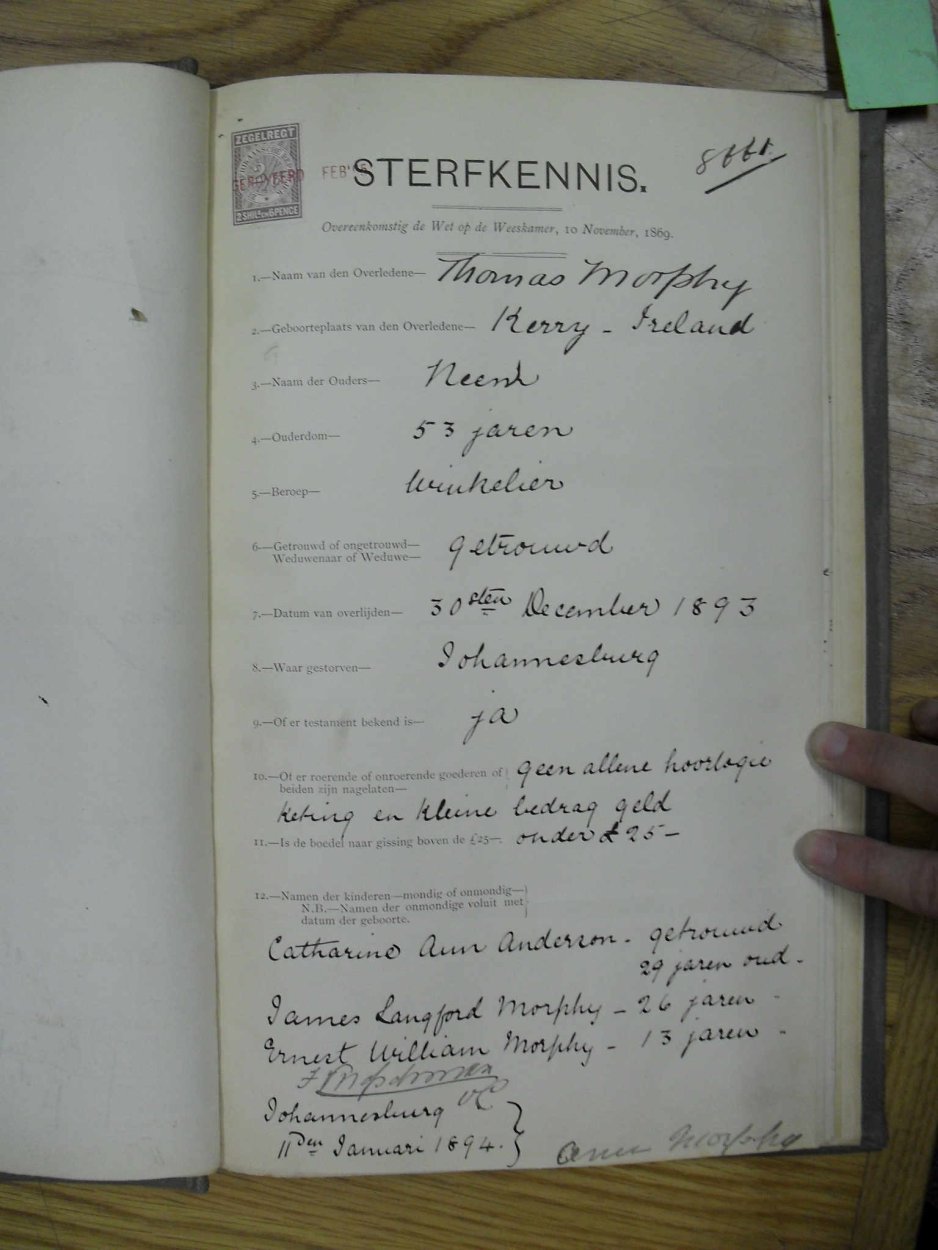 ZEGELREGT
GEROYEERD FEB'
2 SHILG EN 6 PENCE
8661
STERFKENNIS.
Overeenkomstig de Wet op de Weeskamer, 10 November, 1869.
1.—Naam van den Overledene— Thomas Morphy
2.—Geboorteplaats van den Overledene— Kerry - Ireland
3.—Naam der Ouders—
4.—Ouderdom— 53 jaren
5.—Beroep— Winkelier
6.—Getrouwd of ongetrouwd—
Weduwenaar of Weduwe— getrouwd
7.—Datum van overlijden— 30sten December 1893
8.—Waar gestorven— Johannesburg
9.—Of er testament bekend is— ja
10.—Of er roerende of onroerende goederen of geen allene hoorlogie
beiden zijn nagelaten—
keting en kleine bedrag geld
11.—Is de boedel naar gissing boven de £25— onder £25-
12.—Namen der kinderen—mondig of onmondig—
N.B.—Namen der onmondige voluit met
datum der geboorte.
Catharine Ann Anderson - getrouwd
29 jaren oud -
James Langford Morphy - 26 jaren -
Ernest William Morphy - 13 jaren -
Johannesburg
11den Januari 1894.
Ann Morphy